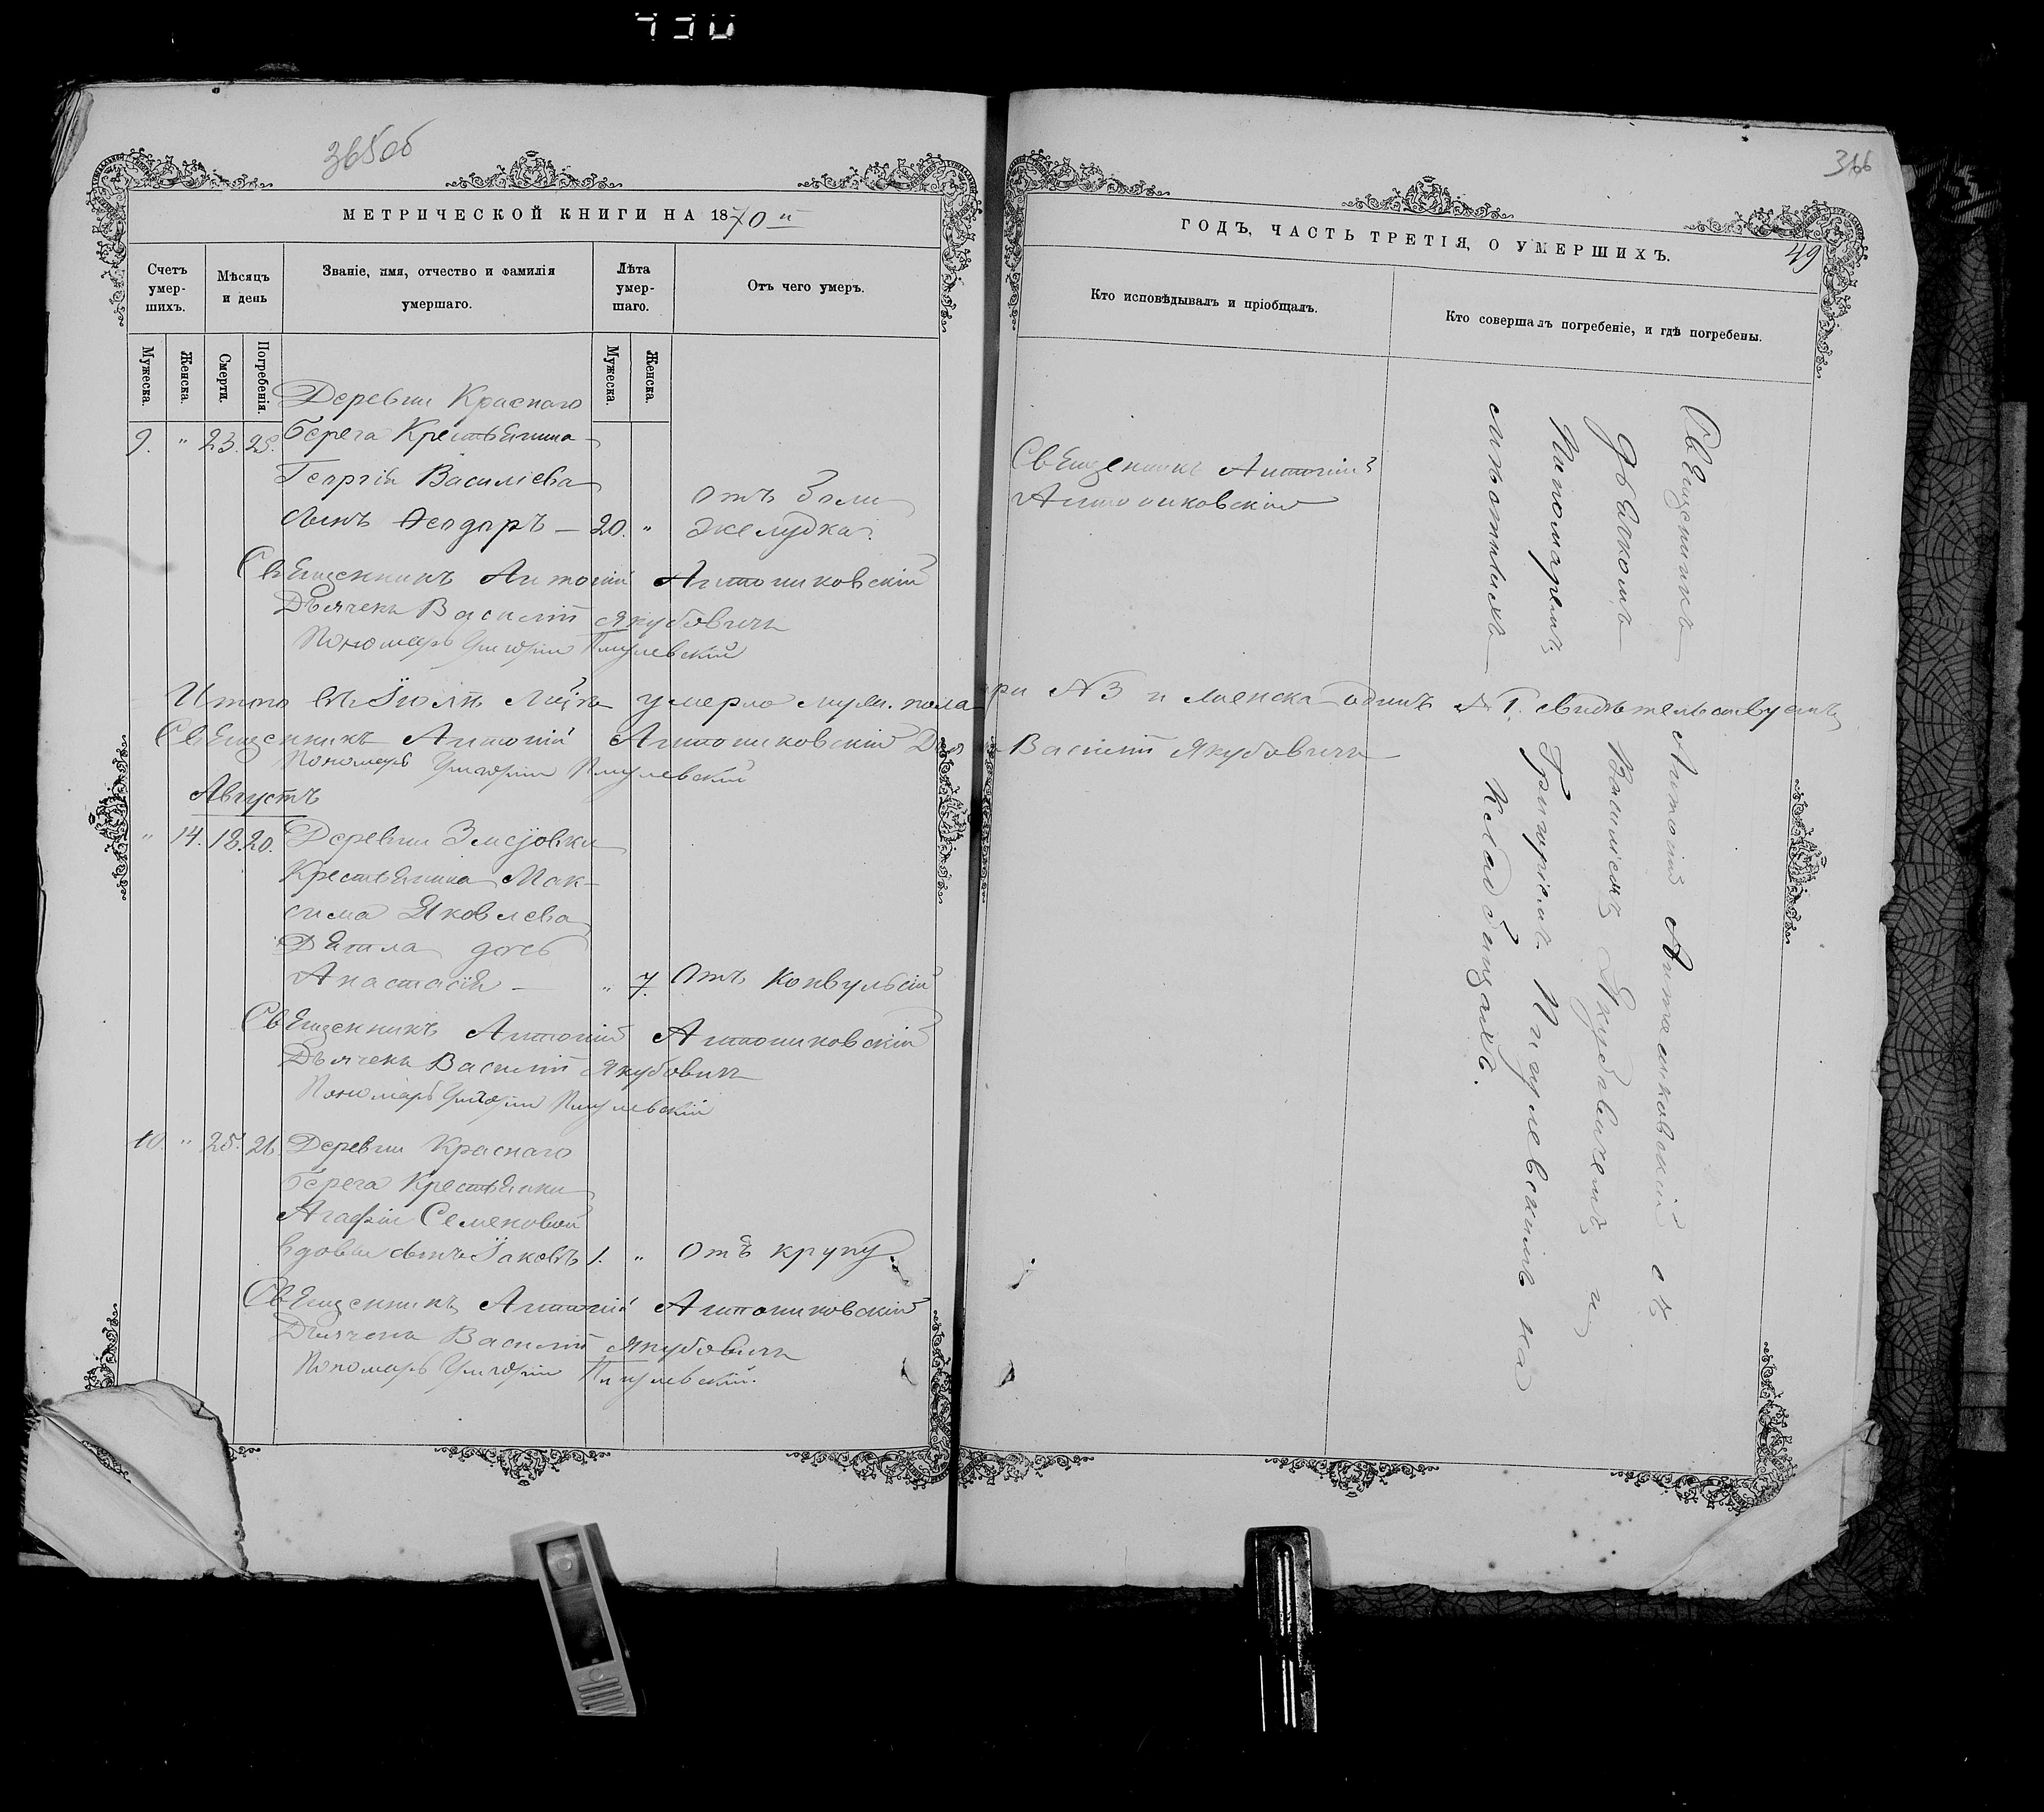 730
365об
366
МЕТРИЧЕСКОЙ КНИГИ НА 1870й
Счетъ умер-шихъ.
Мѣсяцъ и день
Званіе, имя, отчество и фамилія умершаго.
Лѣта умер-шаго.
Отъ чего умеръ.
Мужеска.
Женска.
Смерти.
Погребенія.
Мужеска.
Женска.
Деревни Краснаго
9. " 23. 25. Берега Крестьянина
Георгія Василіева
сынъ Ѳеодоръ — 20. "
отъ боли
желудка
Священникъ Антоній Антониковскій
Дьячекъ Василій Якубовичъ
Пономарь Григорій Пигулевскій
Итого въ Іюлѣ м-цѣ умерло муж. пола
Священникъ Антоній Антониковскій
Пономарь Григорій Пигулевскій
Августъ
" 14. 18. 20. Деревни
Крестьянина Мак-
сима Яковлева
дочь
Анастасія — " 7. Отъ конвульсій
Священникъ Антоній Антониковскій
Дьячекъ Василій Якубовичъ
Пономарь Григорій Пигулевскій
10. " 25. 26. Деревни Краснаго
Берега Крестьянки
Агафіи Семеновой
вдовы сынъ Іаковъ 1. " Отъ крупу
Священникъ Антоній Антониковскій
Дьячекъ Василій Якубовичъ
Пономарь Григорій Пигулевскій.
ГОДЪ, ЧАСТЬ ТРЕТІЯ, О УМЕРШИХЪ.
49
Кто исповѣдывалъ и пріобщалъ.
Кто совершалъ погребеніе, и гдѣ погребены.
Священникъ Антоній
Антониковскій
три №3 и женска одинъ №1. свидѣтельствуемъ
Василій Якубовичъ
Священникъ Антоній Антониковскій съ
дьячкомъ Василіемъ Якубовичемъ и
Пономаремъ Григоріемъ Пигулевскимъ на
кладбищахъ.